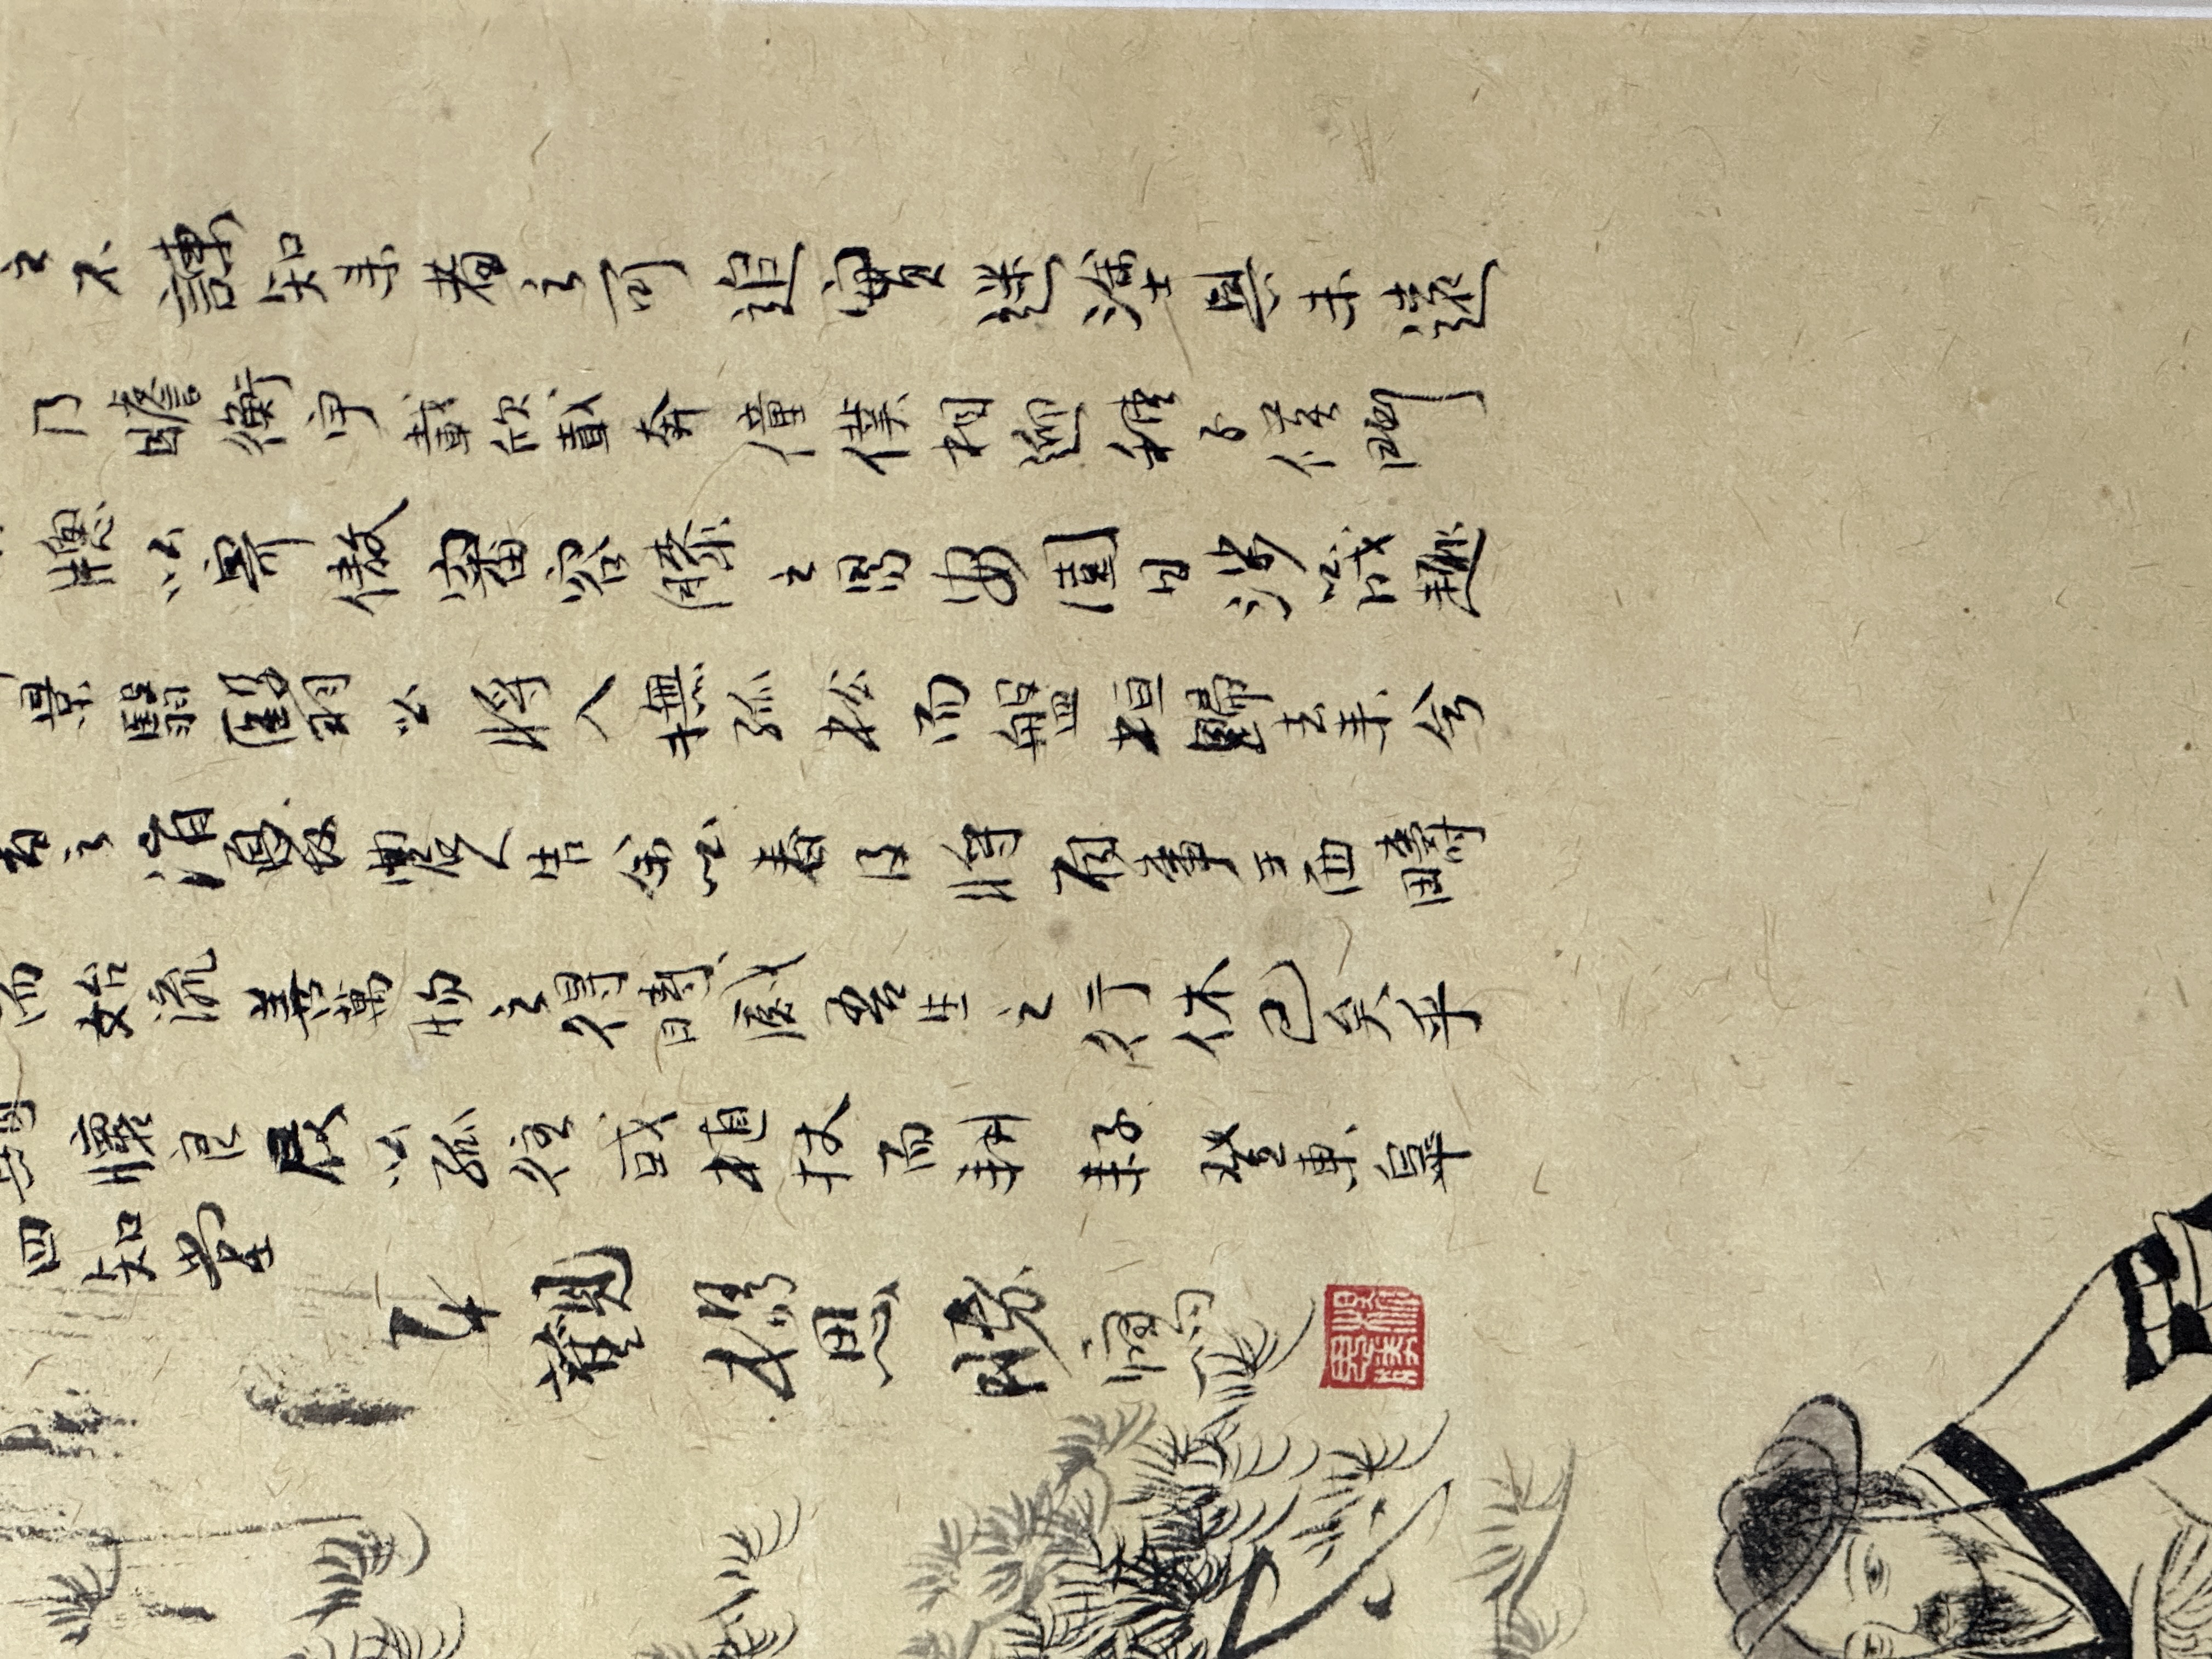 之不諫知來者之可追寔迷途其未遠
門瞻衡宇載欣載奔僮僕相迎稚子候門
牕以寄傲審容膝之易安園日涉以成趣
景翳翳以將入撫孤松而盤桓歸去來兮
消憂農人告余以春及將有事于西疇
而始流善萬物之得時感吾生之行休已矣乎
懷良辰以孤往或植杖而耘耔登東皋
四知堂